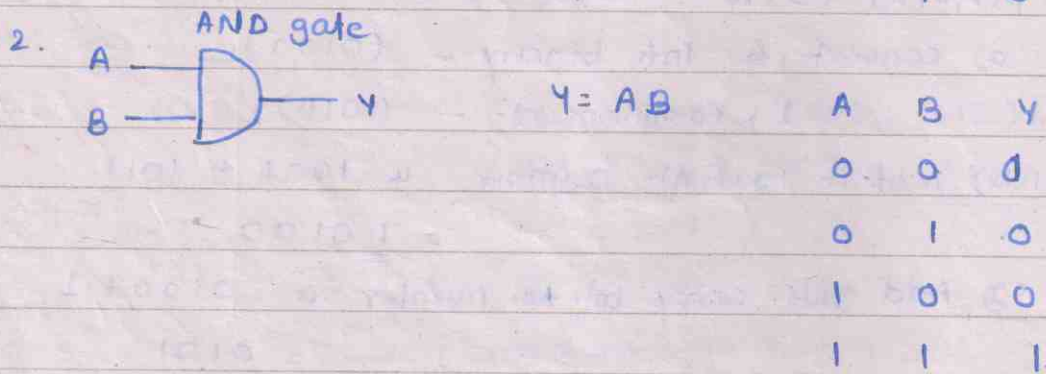 2. AND gate
A
B
Y
Y = AB
A B Y
0 0 0
0 1 0
1 0 0
1 1 1